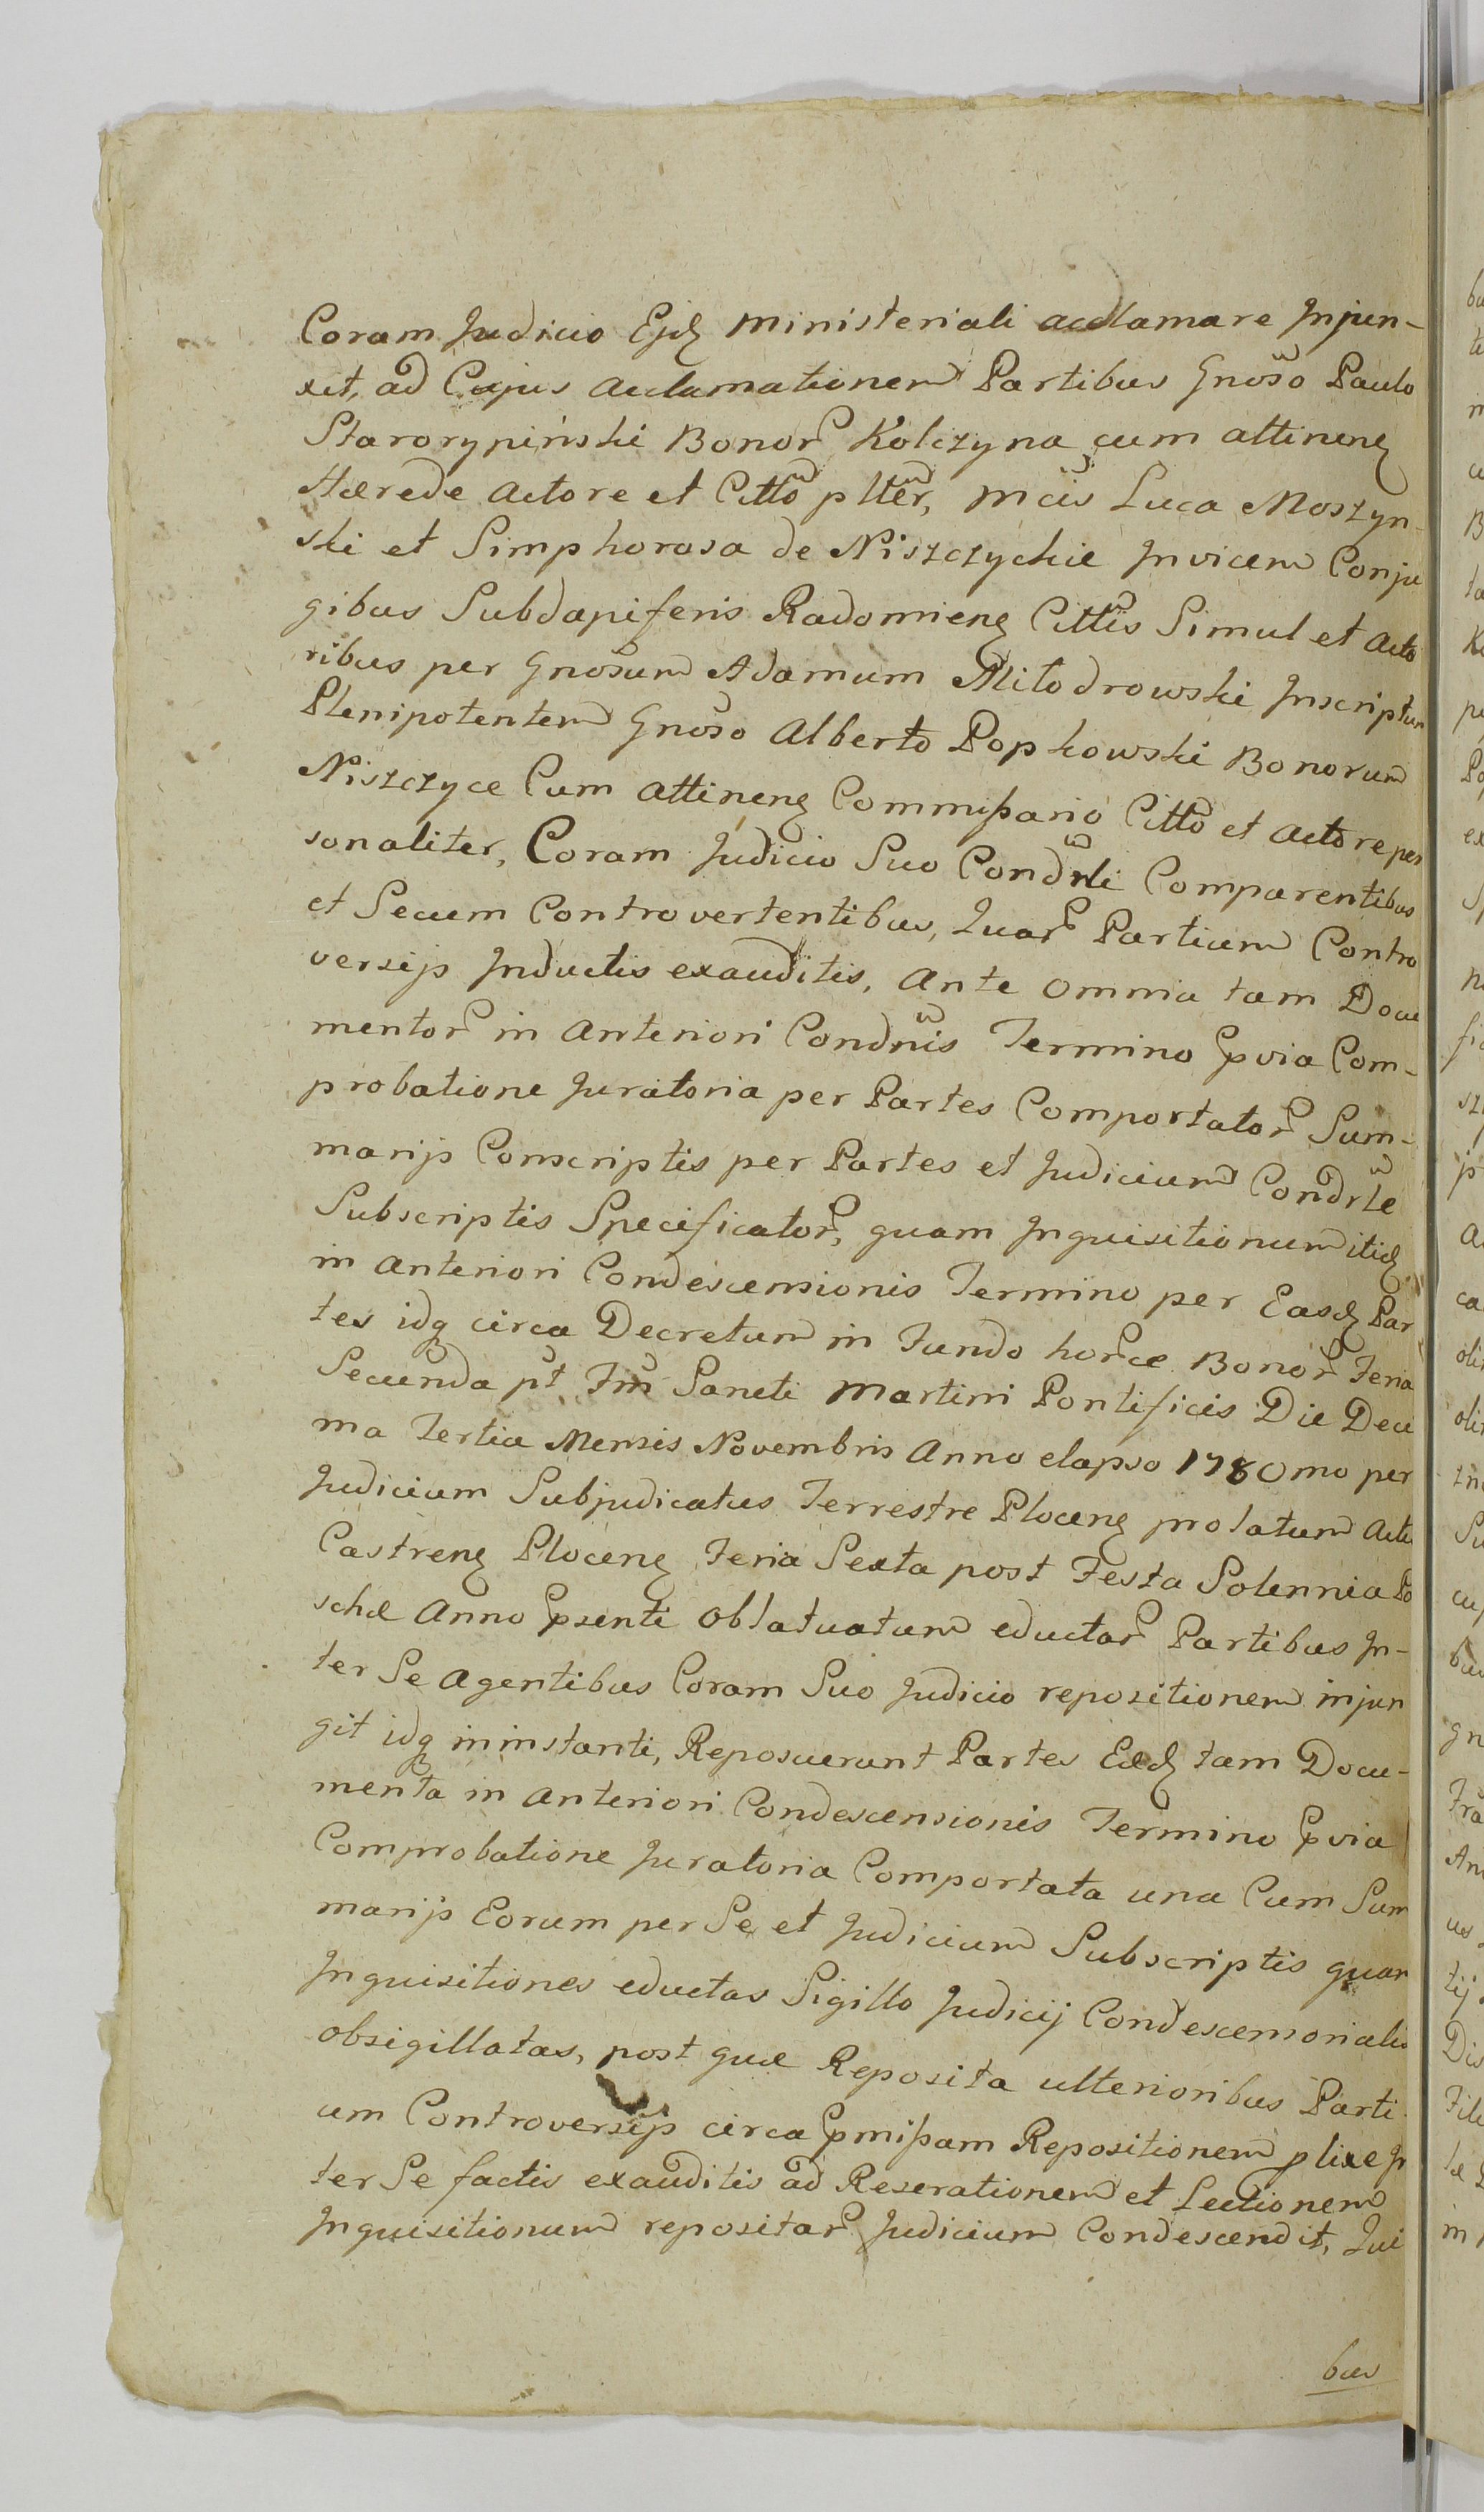 Coram Judicio Ejd ministeriali acclamare Injun-
xit, ad Cujus Acclamationem Partibus Gnoso Paulo
Starorypiński Bonor Kolczyna cum attinen
Hærede Actore et Citto plter, Mcis Luca Moszyn-
ski et Simphorosa de Niszczyckie Invicem Conju
gibus Subdapiferis Radomien Cittis Simul et Acto
ribus per Gnosum Adamum Miłodrowski Inscriptum
Plenipotentem Gnoso Alberto Popkowski Bonorum
Niszczyce Cum attinen Commissario Citto et Actore per
sonaliter, Coram Judicio Suo Condnli Comparentibus
et Secum Controvertentibus, Quar Partium Contro
versijs Inductis exauditis, Ante omnia tam Docu
mentor in Anteriori Condnis Termino pvia Com-
probatione Juratoria per Partes Comportator Sum-
marijs Conscriptis per Partes et Judicium Condnle
Subscriptis Specificator, quam Inquisitionum itid
in Anteriori Condescensionis Termino per Easd Par
tes idq circa Decretum in Fundo horce Bonor Feria
Secunda pt Fm Sancti Martini Pontificis Die Deci
ma Tertia Mensis Novembris Anno elapso 1780mo per
Judicium Subjudicatus Terrestre Plocen prolatum Actis
Castren Plocen Feria Sexta post Festa Solennia Pa
schæ Anno psenti Oblatuatum eductar Partibus In-
ter Se Agentibus Coram Suo Judicio repositionem injun
git idq in instanti, Reposuerunt Partes Eæd tam Docu-
menta in Anteriori Condescensionis Termino pvia
Comprobatione Juratoria Comportata una Cum Sum
marijs Eorum per Se et Judicium Subscriptis quam
Inquisitiones eductas Sigillo Judicij Condescensorialis
obsigillatas, post quæ Reposita ulterioribus Parti
um Controversijs circa pmissam Repositionem plixe In
ter Se factis exauditis ad Reserationem et Lectionem
Inquisitionum repositar Judicium Condescendit, Qui
bus